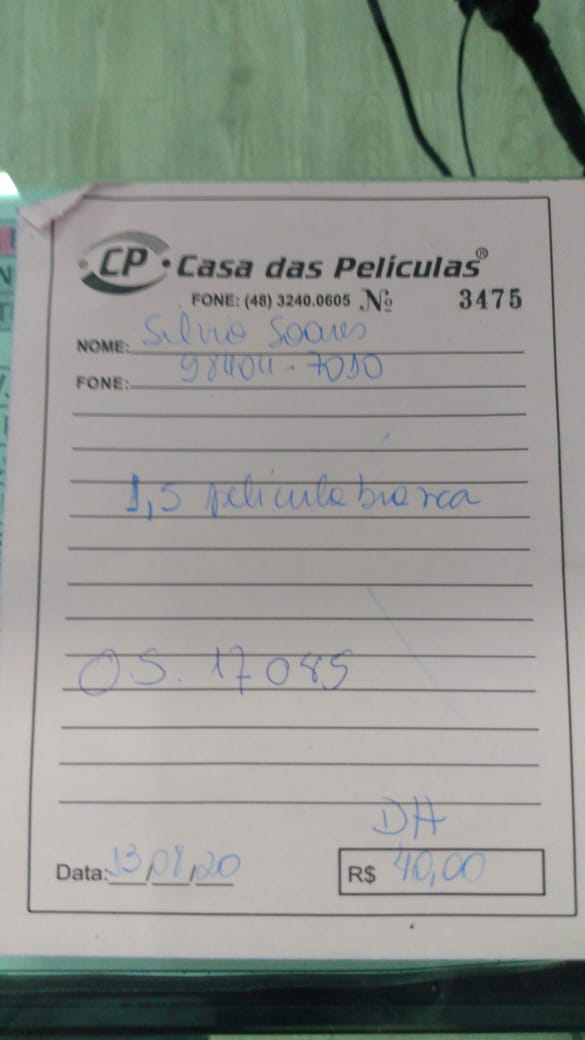 CP Casa das Películas®
FONE: (48) 3240.0605 Nº 3475
NOME: Silvio Soares
FONE: 98404-7010
1,5 película branca
OS. 17085
DH
Data: 13/07/20 R$ 40,00